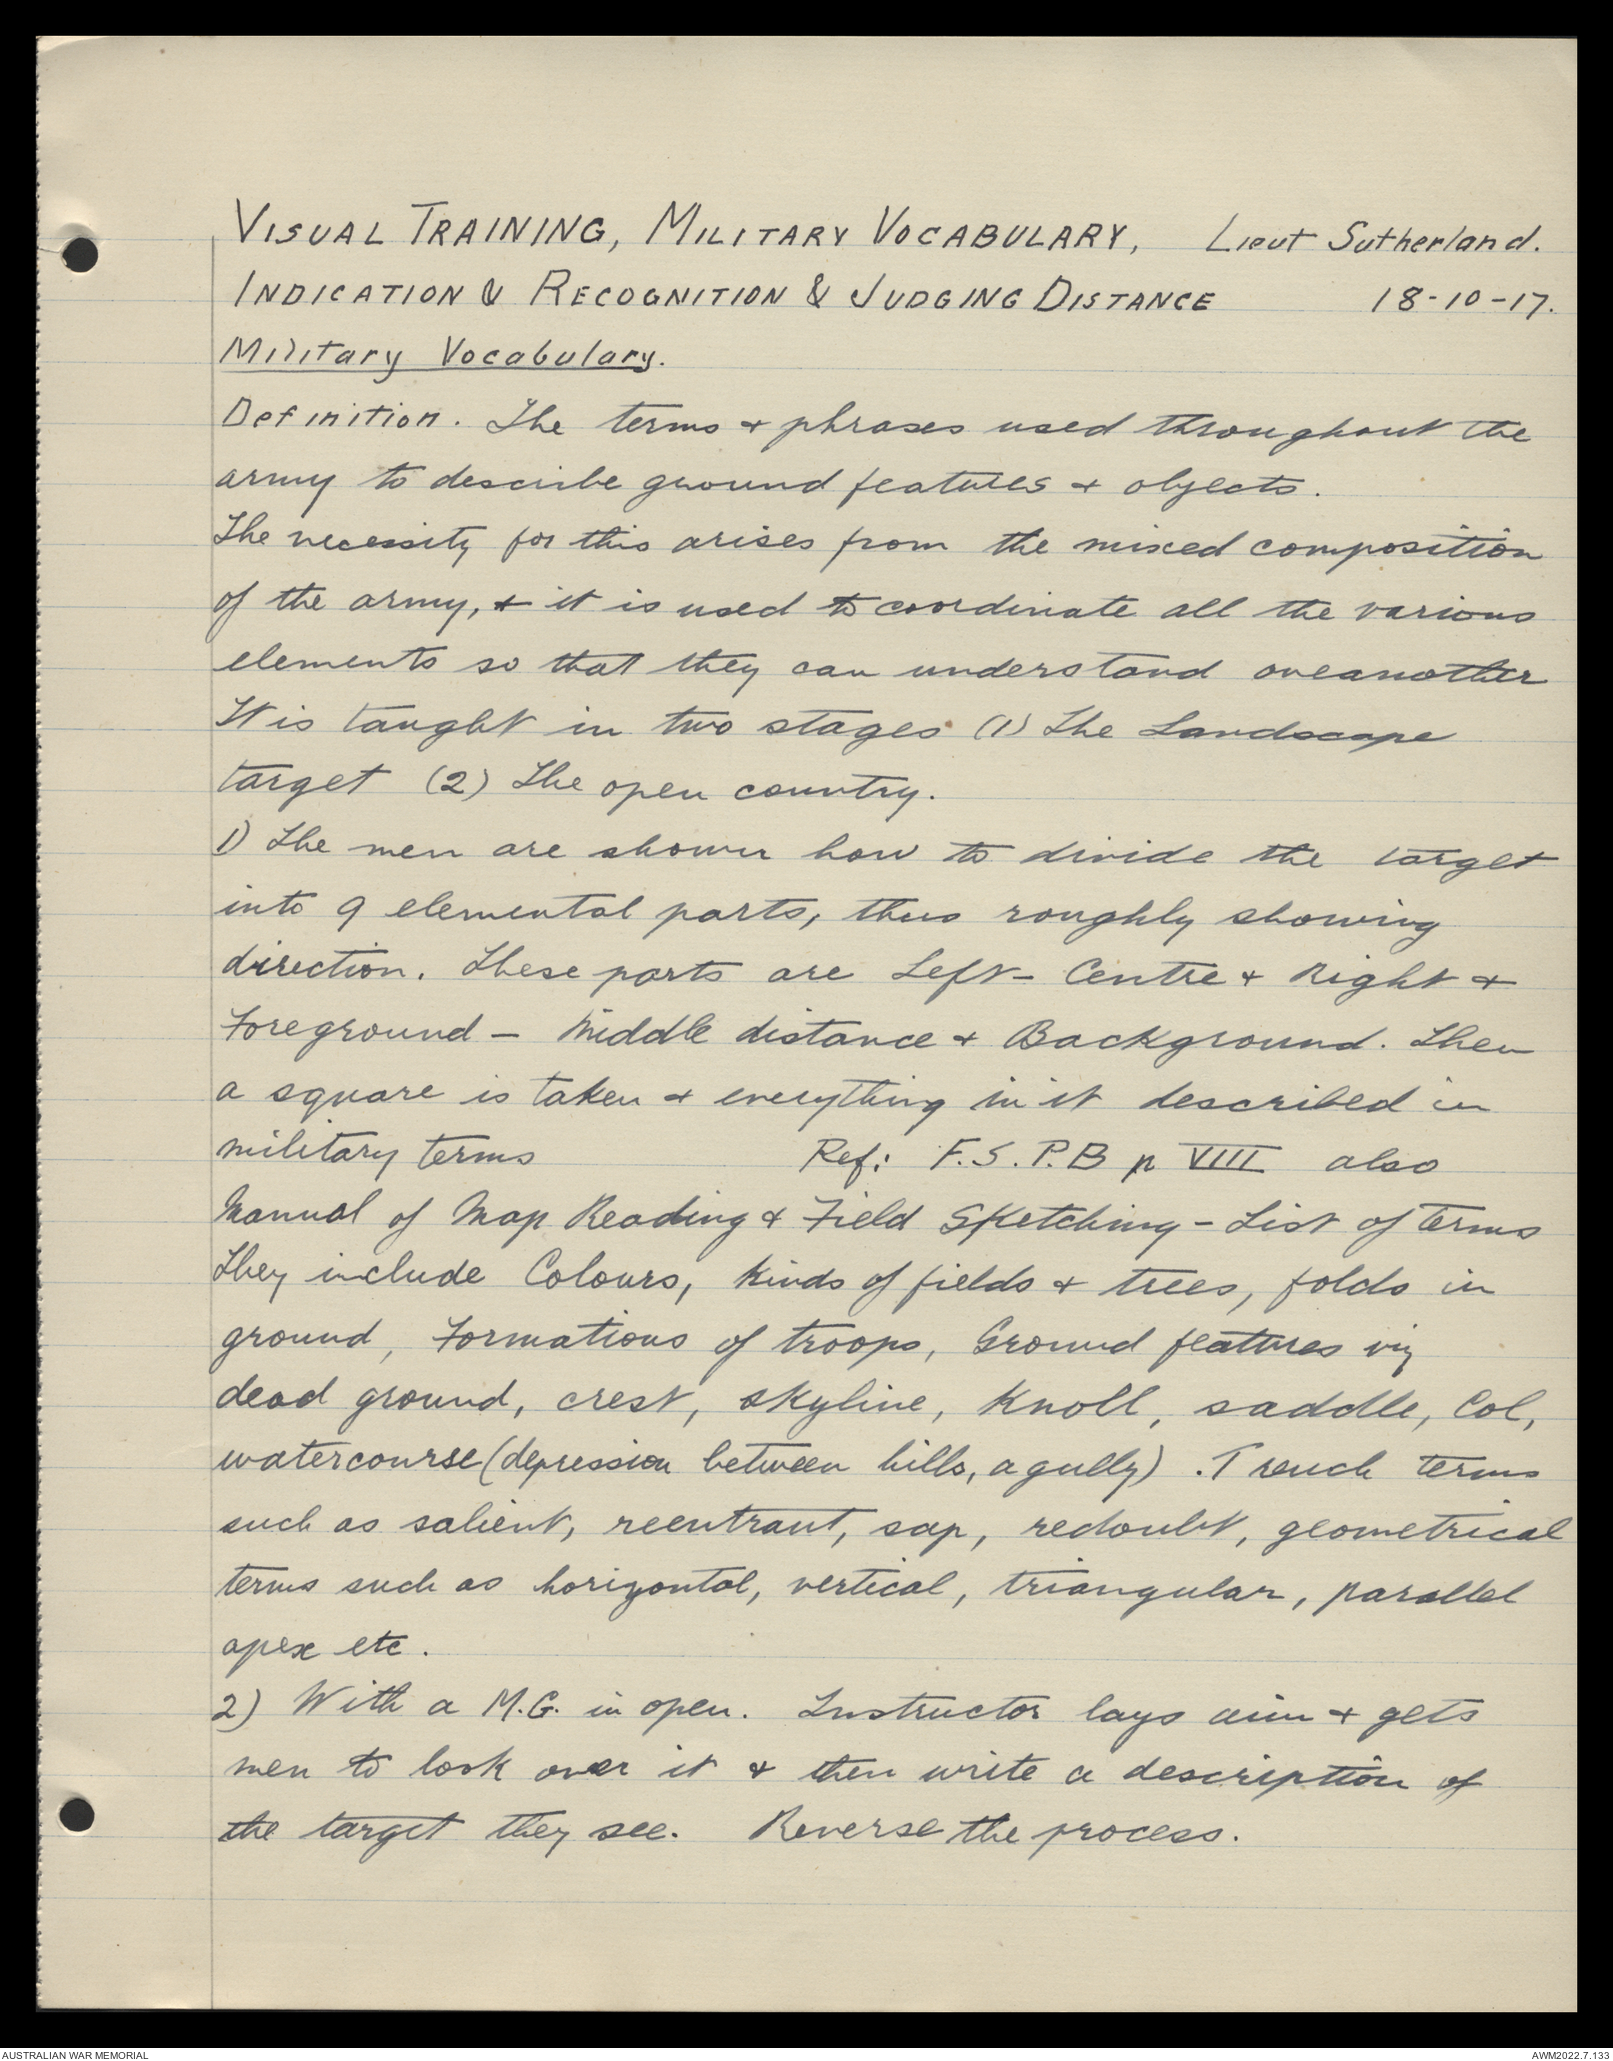 VISUAL TRAINING, MILITARY VOCABULARY, Lieut Sutherland.
INDICATION & RECOGNITION & JUDGING DISTANCE 18-10-17.
Military Vocabulary.
Definition. The terms + phrases used throughout the
army to describe ground features + objects.
The necessity for this arises from the mixed composition
of the army, + it is used to coordinate all the various
elements so that they can understand oneanother
It is taught in two stages (1) The Landscape
target (2) The open country.
1) The men are shown how to divide the target
into 9 elemental parts, thus roughly showing
direction. These parts are Left - Centre + Right +
Foreground - Middle distance + Background. Then
a square is taken + everything in it described in
military terms Ref: F.S.P.B p VIII also
Manual of Map Reading + Field Sketching - List of terms
They include Colours, Kinds of fields + trees, folds in
ground, Formations of troops, Ground features viz
dead ground, crest, skyline, Knoll, saddle, Col,
watercourse (depression between hills, a gully). Trench terms
such as salient, reentrant, sap, redoubt, geometrical
terms such as horizontal, vertical, triangular, parallel
apex etc.
2) With a M.G. in open. Instructor lays aim + gets
men to look over it + then write a description of
the target they see. Reverse the process.
AUSTRALIAN WAR MEMORIAL AWM2022.7.133